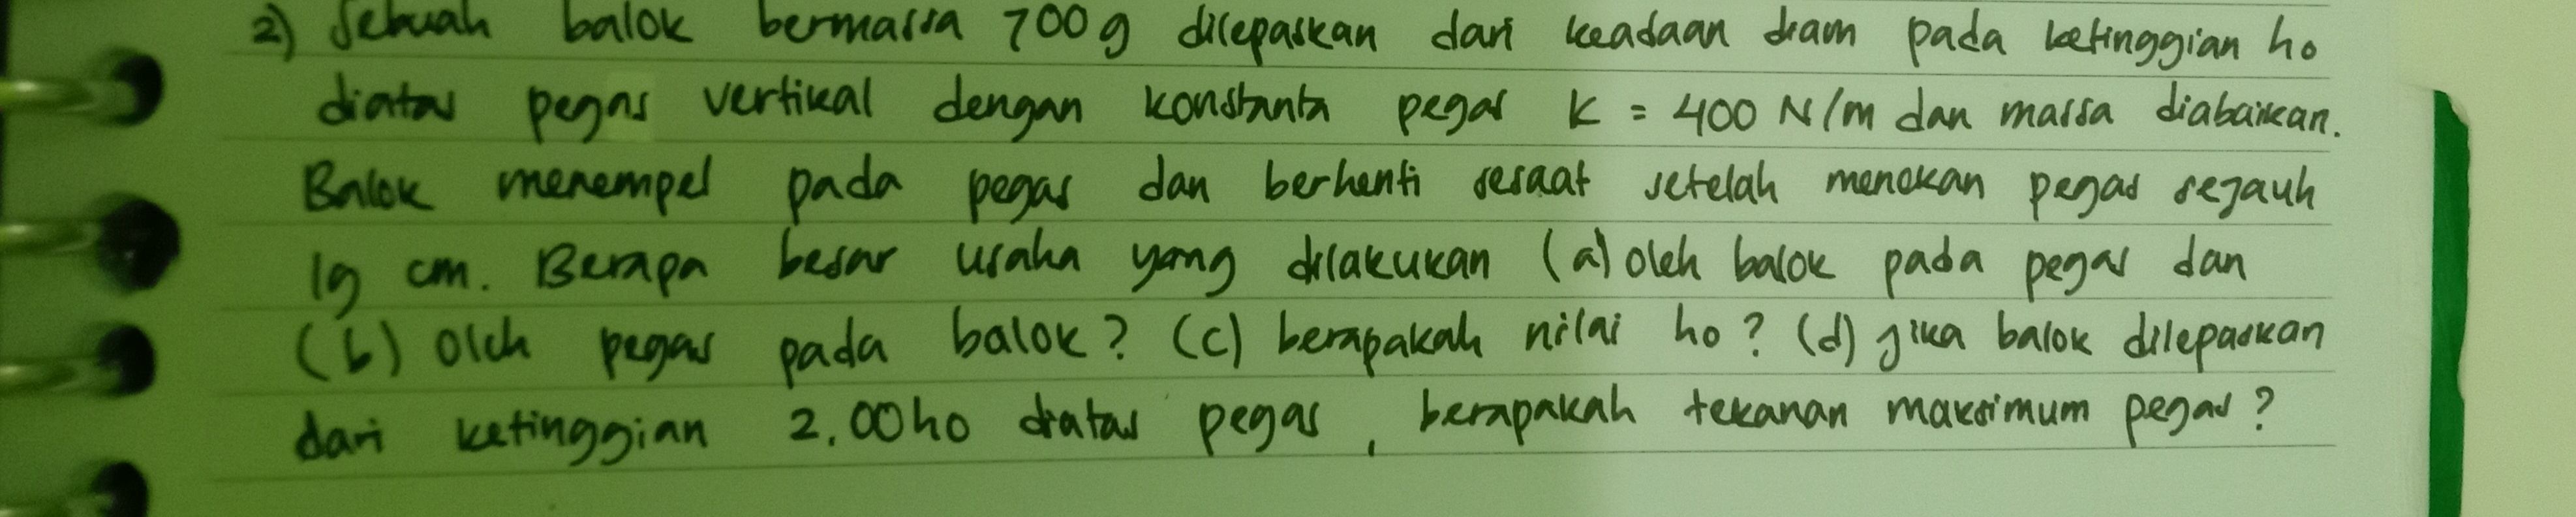 2) Sebuah balok bermassa 700 g dilepaskan dari keadaan diam pada ketinggian ho
diatas pegas vertikal dengan konstanta pegas k = 400 N/m dan massa diabaikan.
Balok menempel pada pegas dan berhenti sesaat setelah menekan pegas sejauh
19 cm. Berapa besar usaha yang dilakukan (a) oleh balok pada pegas dan
(b) oleh pegas pada balok? (c) berapakah nilai ho? (d) jika balok dilepaskan
dari ketinggian 2.00ho diatas pegas, berapakah tekanan maksimum pegas?